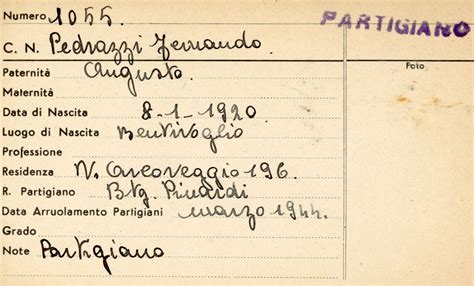 Numero 1055 PARTIGIANO
C. N. Pedrazzi Fernando.
Paternità Augusto. Foto
Maternità
Data di Nascita 8-1-1920
Luogo di Nascita Bentivoglio
Professione
Residenza V. Arcoveggio 196.
R. Partigiano Btg. Pinardi
Data Arruolamento Partigiani marzo 1944.
Grado
Note Partigiano